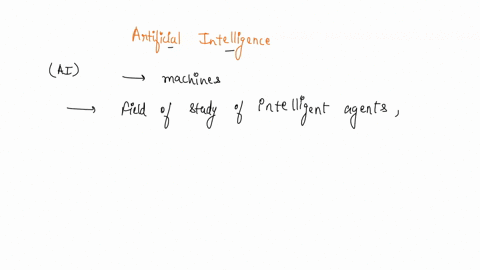 Artificial Intelligence
(AI) → machines
→ Field of study of Intelligent agents,